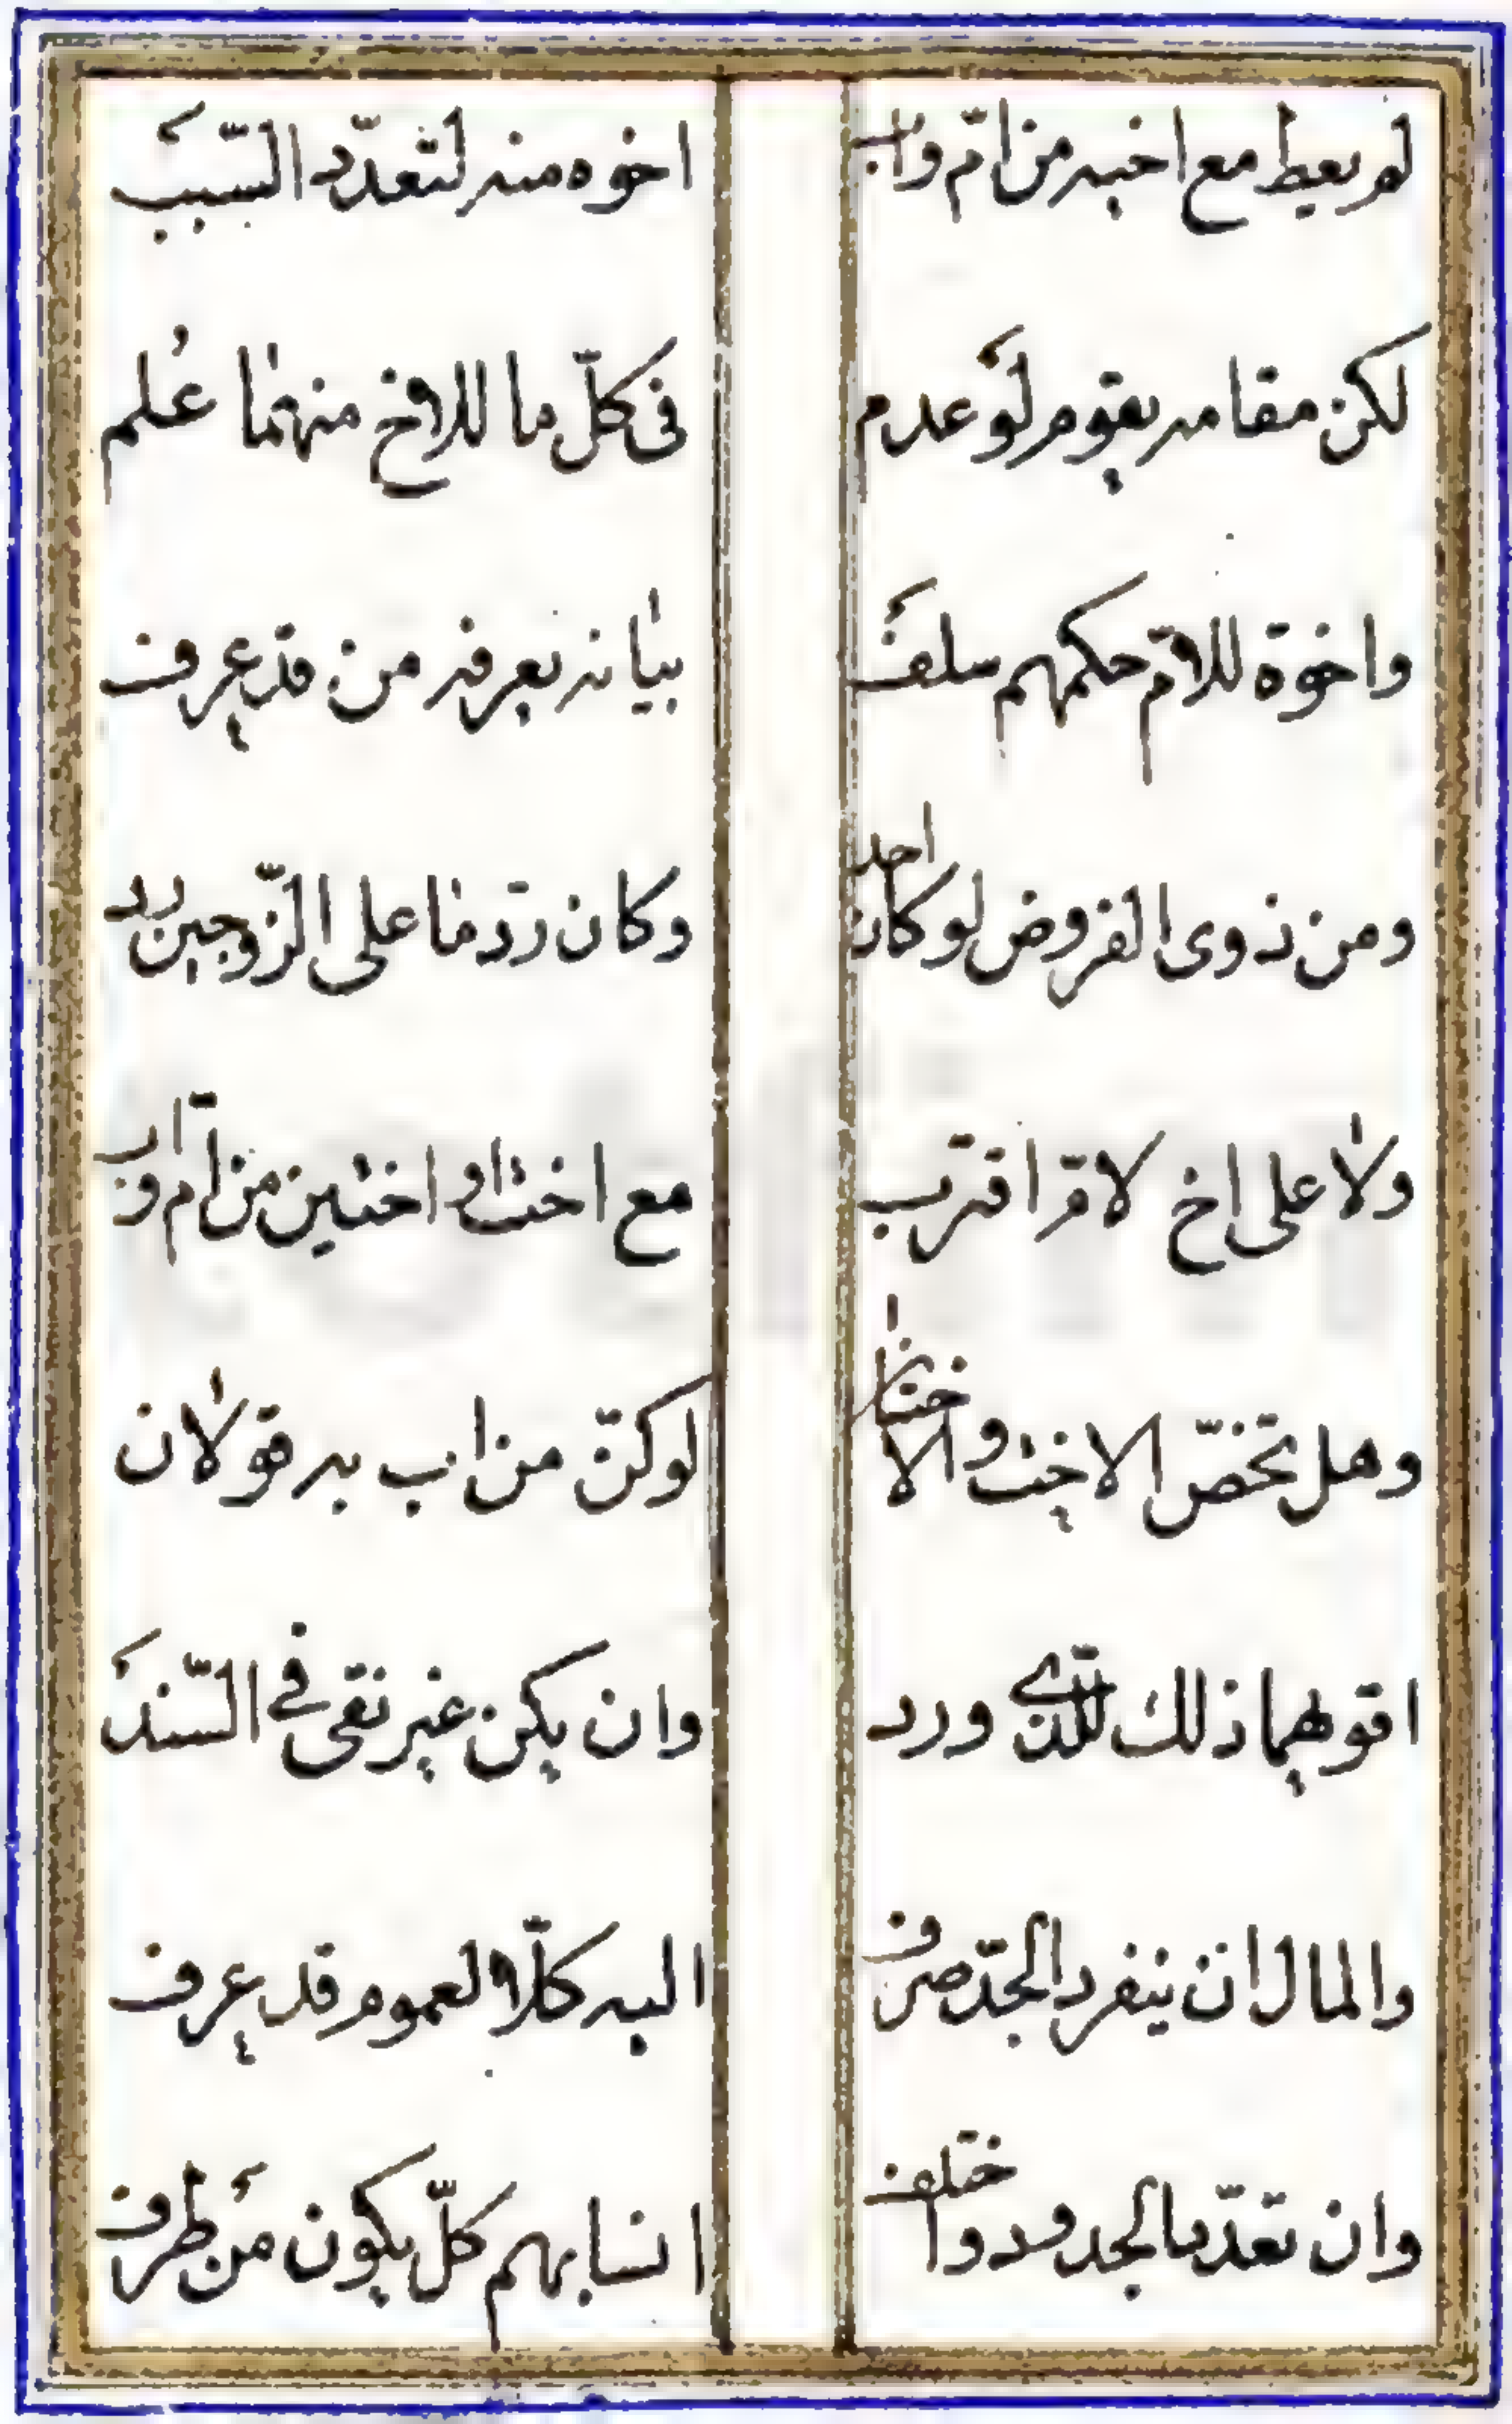 لم يعط مع اخيه من امّ واب اخوه منه لتعدّد السّبب
لكن مقامه يقوم لو عدم فى كلّ ما للاخ منهما عُلم
واخوة للامّ حكمهم سلف بيانه يعرفه من قد عرف
ومن ذوى الفروض لو كان احد وكان ردّ ما على الزّوجين رد
ولا على اخ لامّ اقترب مع اخت او اختين من امّ واب
وهل تخصّ الاخت والاختان لو كنّ من اب به قولان
اقويهما ذلك للّذى ورد وان يكن غير نقى فى السّند
والمال ان ينفرد الجدّ صرف اليه كلّا لعموم قد عرف
وان تعدّد الجدود واختلف انسابهم كلّ يكون من طرف